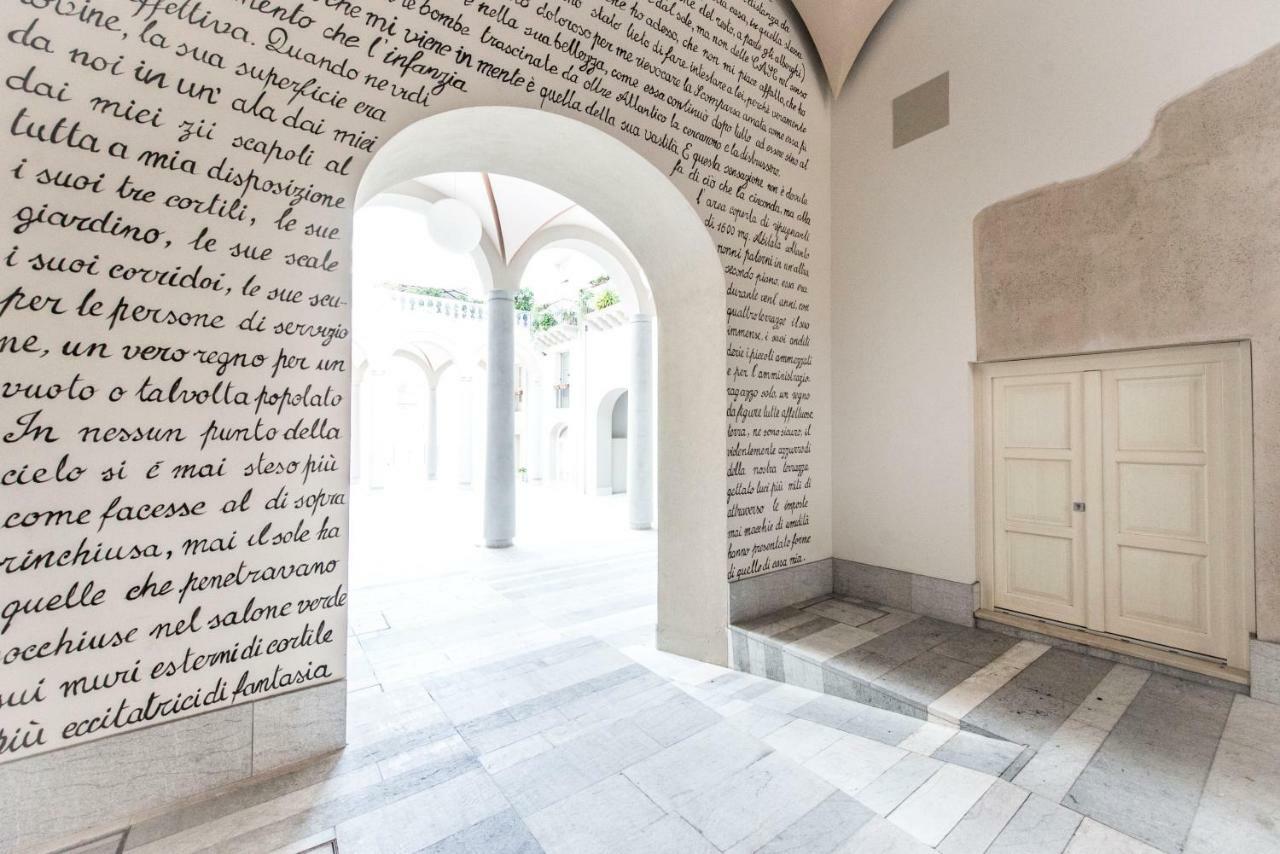 distanza da
casa, in quella stessa
del resto, a parte gli alberghi)
dal sole, ma non delle CASE nel senso
che ho adesso, che non mi piace affatto, che ho
stato lieto di fare intestare a lei, perchè veramente
doloroso per me rievocare la Scomparsa amata come essa fu
e nella sua bellezza, come essa continuò dopo tutto ad essere sino al
le bombe trascinate da oltre Atlantico la cercarono e la distrussero.
che mi viene in mente è quella della sua vastità. E questa sensazione non è dovuta
mento che l'infanzia fa di ciò che la circonda, ma alla
effettiva. Quando ne vidi l'area coperta di ripugnanti
ovine, la sua superficie era di 1600 mq. Abitata soltanto
da noi in un' ala dai miei nonni paterni in un'altra
dai miei zii scapoli al secondo piano, essa era
tutta a mia disposizione durante vent'anni, con
i suoi tre cortili, le sue quattro terrazze il suo
giardino, le sue scale immense, i suoi anditi
i suoi corridoi, le sue scu- derie i piccoli ammezzati
per le persone di servizio e per l'amministrazio
ne, un vero regno per un ragazzo solo, un regno
vuoto o talvolta popolato da figure tutte affettuose.
In nessun punto della terra, ne sono sicuro, il
cielo si è mai steso più videntemente azzurro di
come facesse al di sopra della nostra terrazza
rinchiusa, mai il sole ha gettato luci più miti di
quelle che penetravano attraverso le imposte
socchiuse nel salone verde mai macchie di umidità
sui muri esterni di cortile hanno presentato forme
più eccitatrici di fantasia di quelle di casa mia.